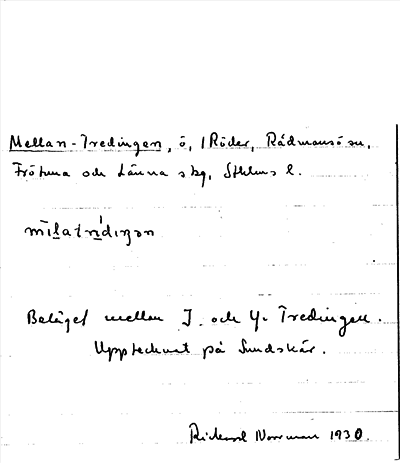 Mellan-Tredingen, ö, i Röder, Rådmansö sn,
Frötuna och Länna skg, Sthlms l.
Beläget mellan I. och Y. Tredingen.
Upptecknat på Sundskär.
Rickard Norrman 1930.